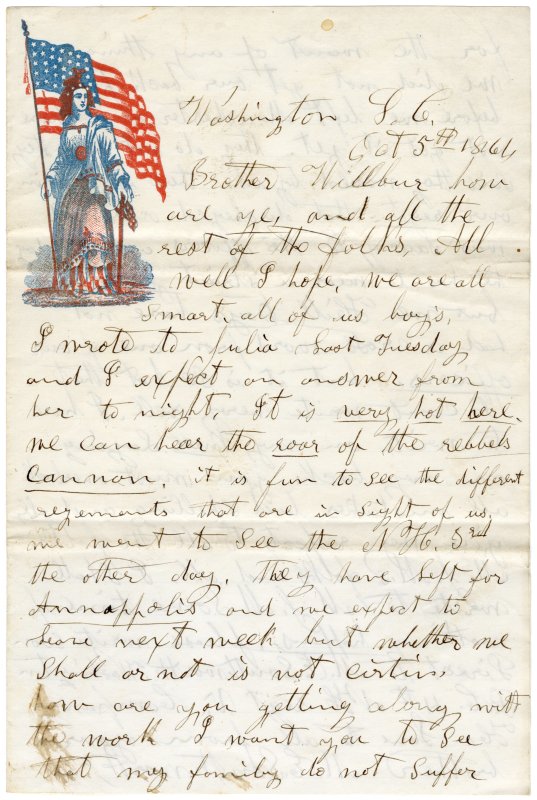 Washington D. C.
Oct 5th 1864
Brother Willbur how
are ye, and all the
rest of the folks, All
well I hope, we are all
smart, all of us boys,
I wrote to Julia Last Tuesday
and I expect an answer from
her to night, It is very hot here.
we can hear the roar of the rebbels
cannon, it is fun to see the different
regements that are in sight of us,
we went to see the N H. 3rd
the other day, they have left for
Annappolis and we expect to
leave next week but whether we
shall or not is not cirtin,
how are you getting along with
the work I want you to see
that my family do not suffer